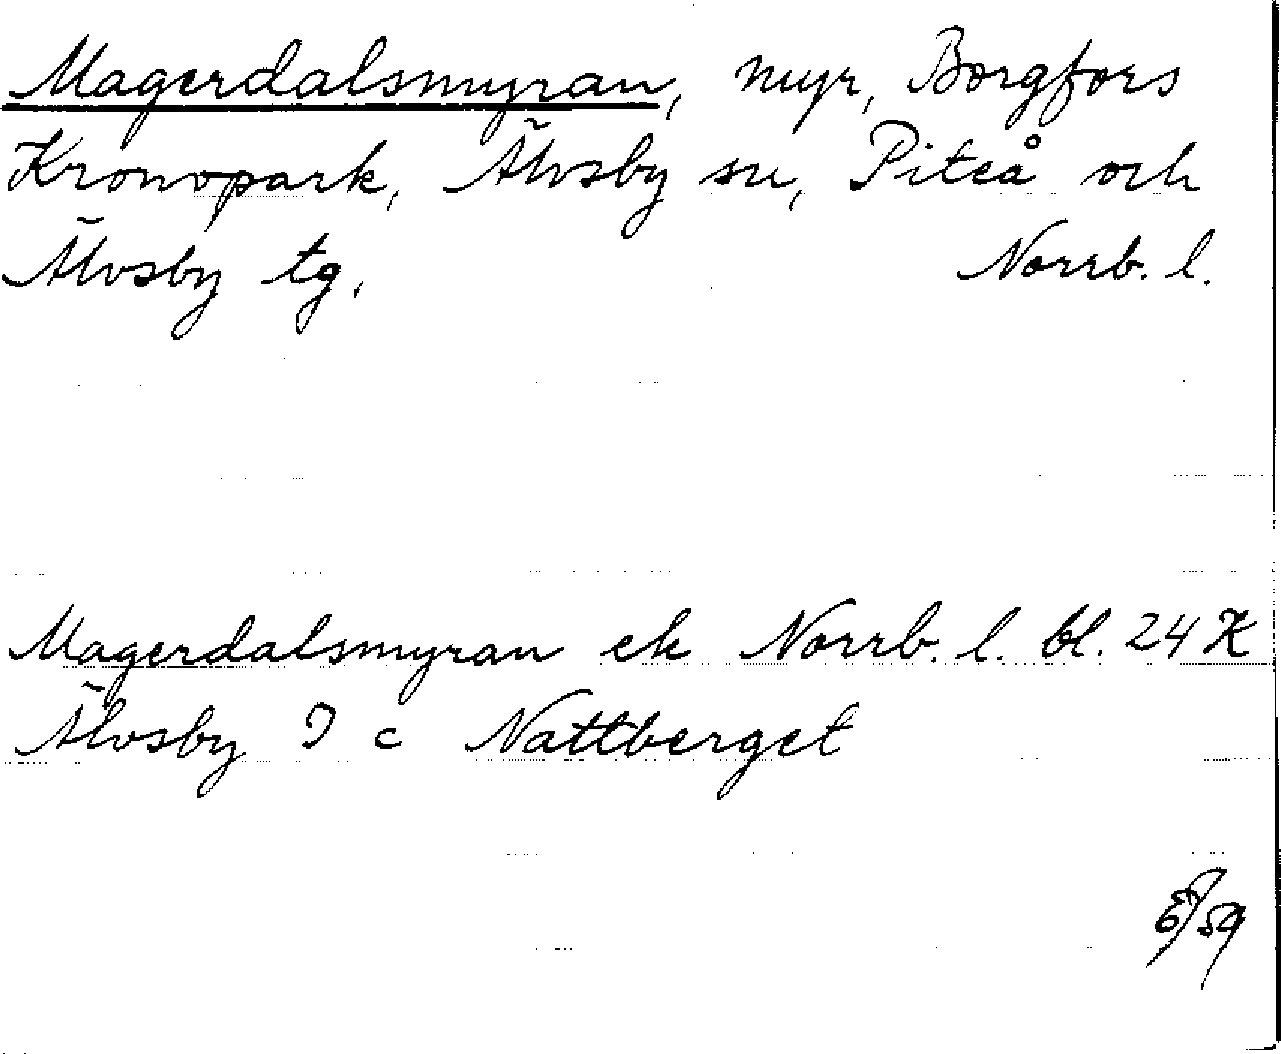 Magerdalsmyran, myr, Borgfors
Kronopark, Älvsby sn, Piteå och
Älvsby tg. Norrb. l.
Magerdalsmyran ek Norrb. l. bl. 24 K
Älvsby I c Nattberget